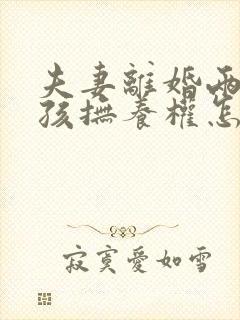 夫妻離婚兩
孩撫養權怎
寂寞愛如雪